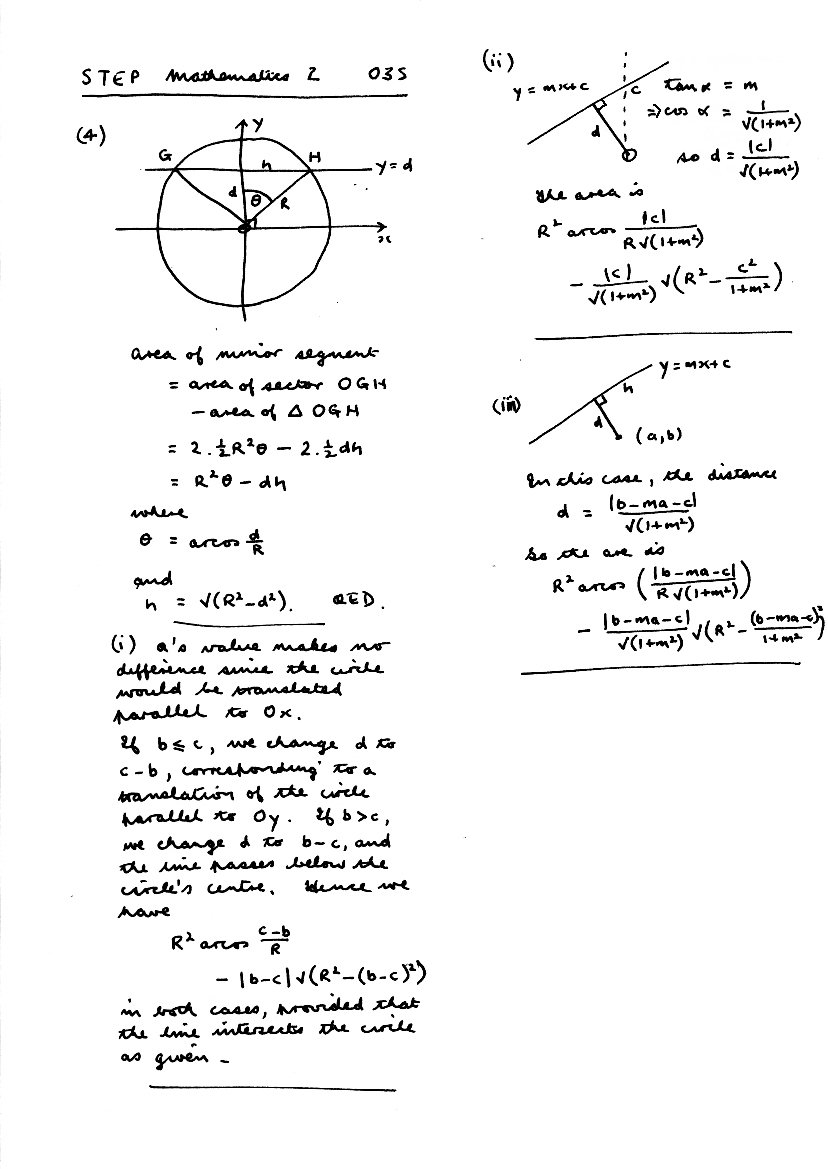 STEP Mathematics 2 03S
(4)
y
G h H
y = d
d θ R
O
x
area of minor segment
= area of sector OGH
- area of Δ OGH
= 2.½R²θ - 2.½dh
= R²θ - dh
where
θ = arcos d/R
and
h = √(R²-d²). QED.
(i) a's value makes no
difference since the circle
would be translated
parallel to Ox.
If b ≤ c, we change d to
c-b, corresponding to a
translation of the circle
parallel to Oy. If b > c,
we change d to b-c, and
the line passes below the
circle's centre. Hence we
have
R² arcos (c-b)/R
- |b-c|√(R²-(b-c)²)
in both cases, provided that
the line intersects the circle
as given.
(ii)
y = mx+c
c
d
O
tan α = m
⇒ cos α = 1/√(1+m²)
so d = |c|/√(1+m²)
The area is
R² arcos |c|/R√(1+m²)
- |c|/√(1+m²) √(R² - c²/1+m²)
(iii)
y = mx+c
h
d
(a,b)
In this case, the distance
d = |b-ma-c|/√(1+m²)
So the are is
R² arcos (|b-ma-c|/R√(1+m²))
- |b-ma-c|/√(1+m²) √(R² - (b-ma-c)²/1+m²)